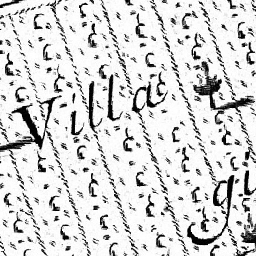 Villa
gi